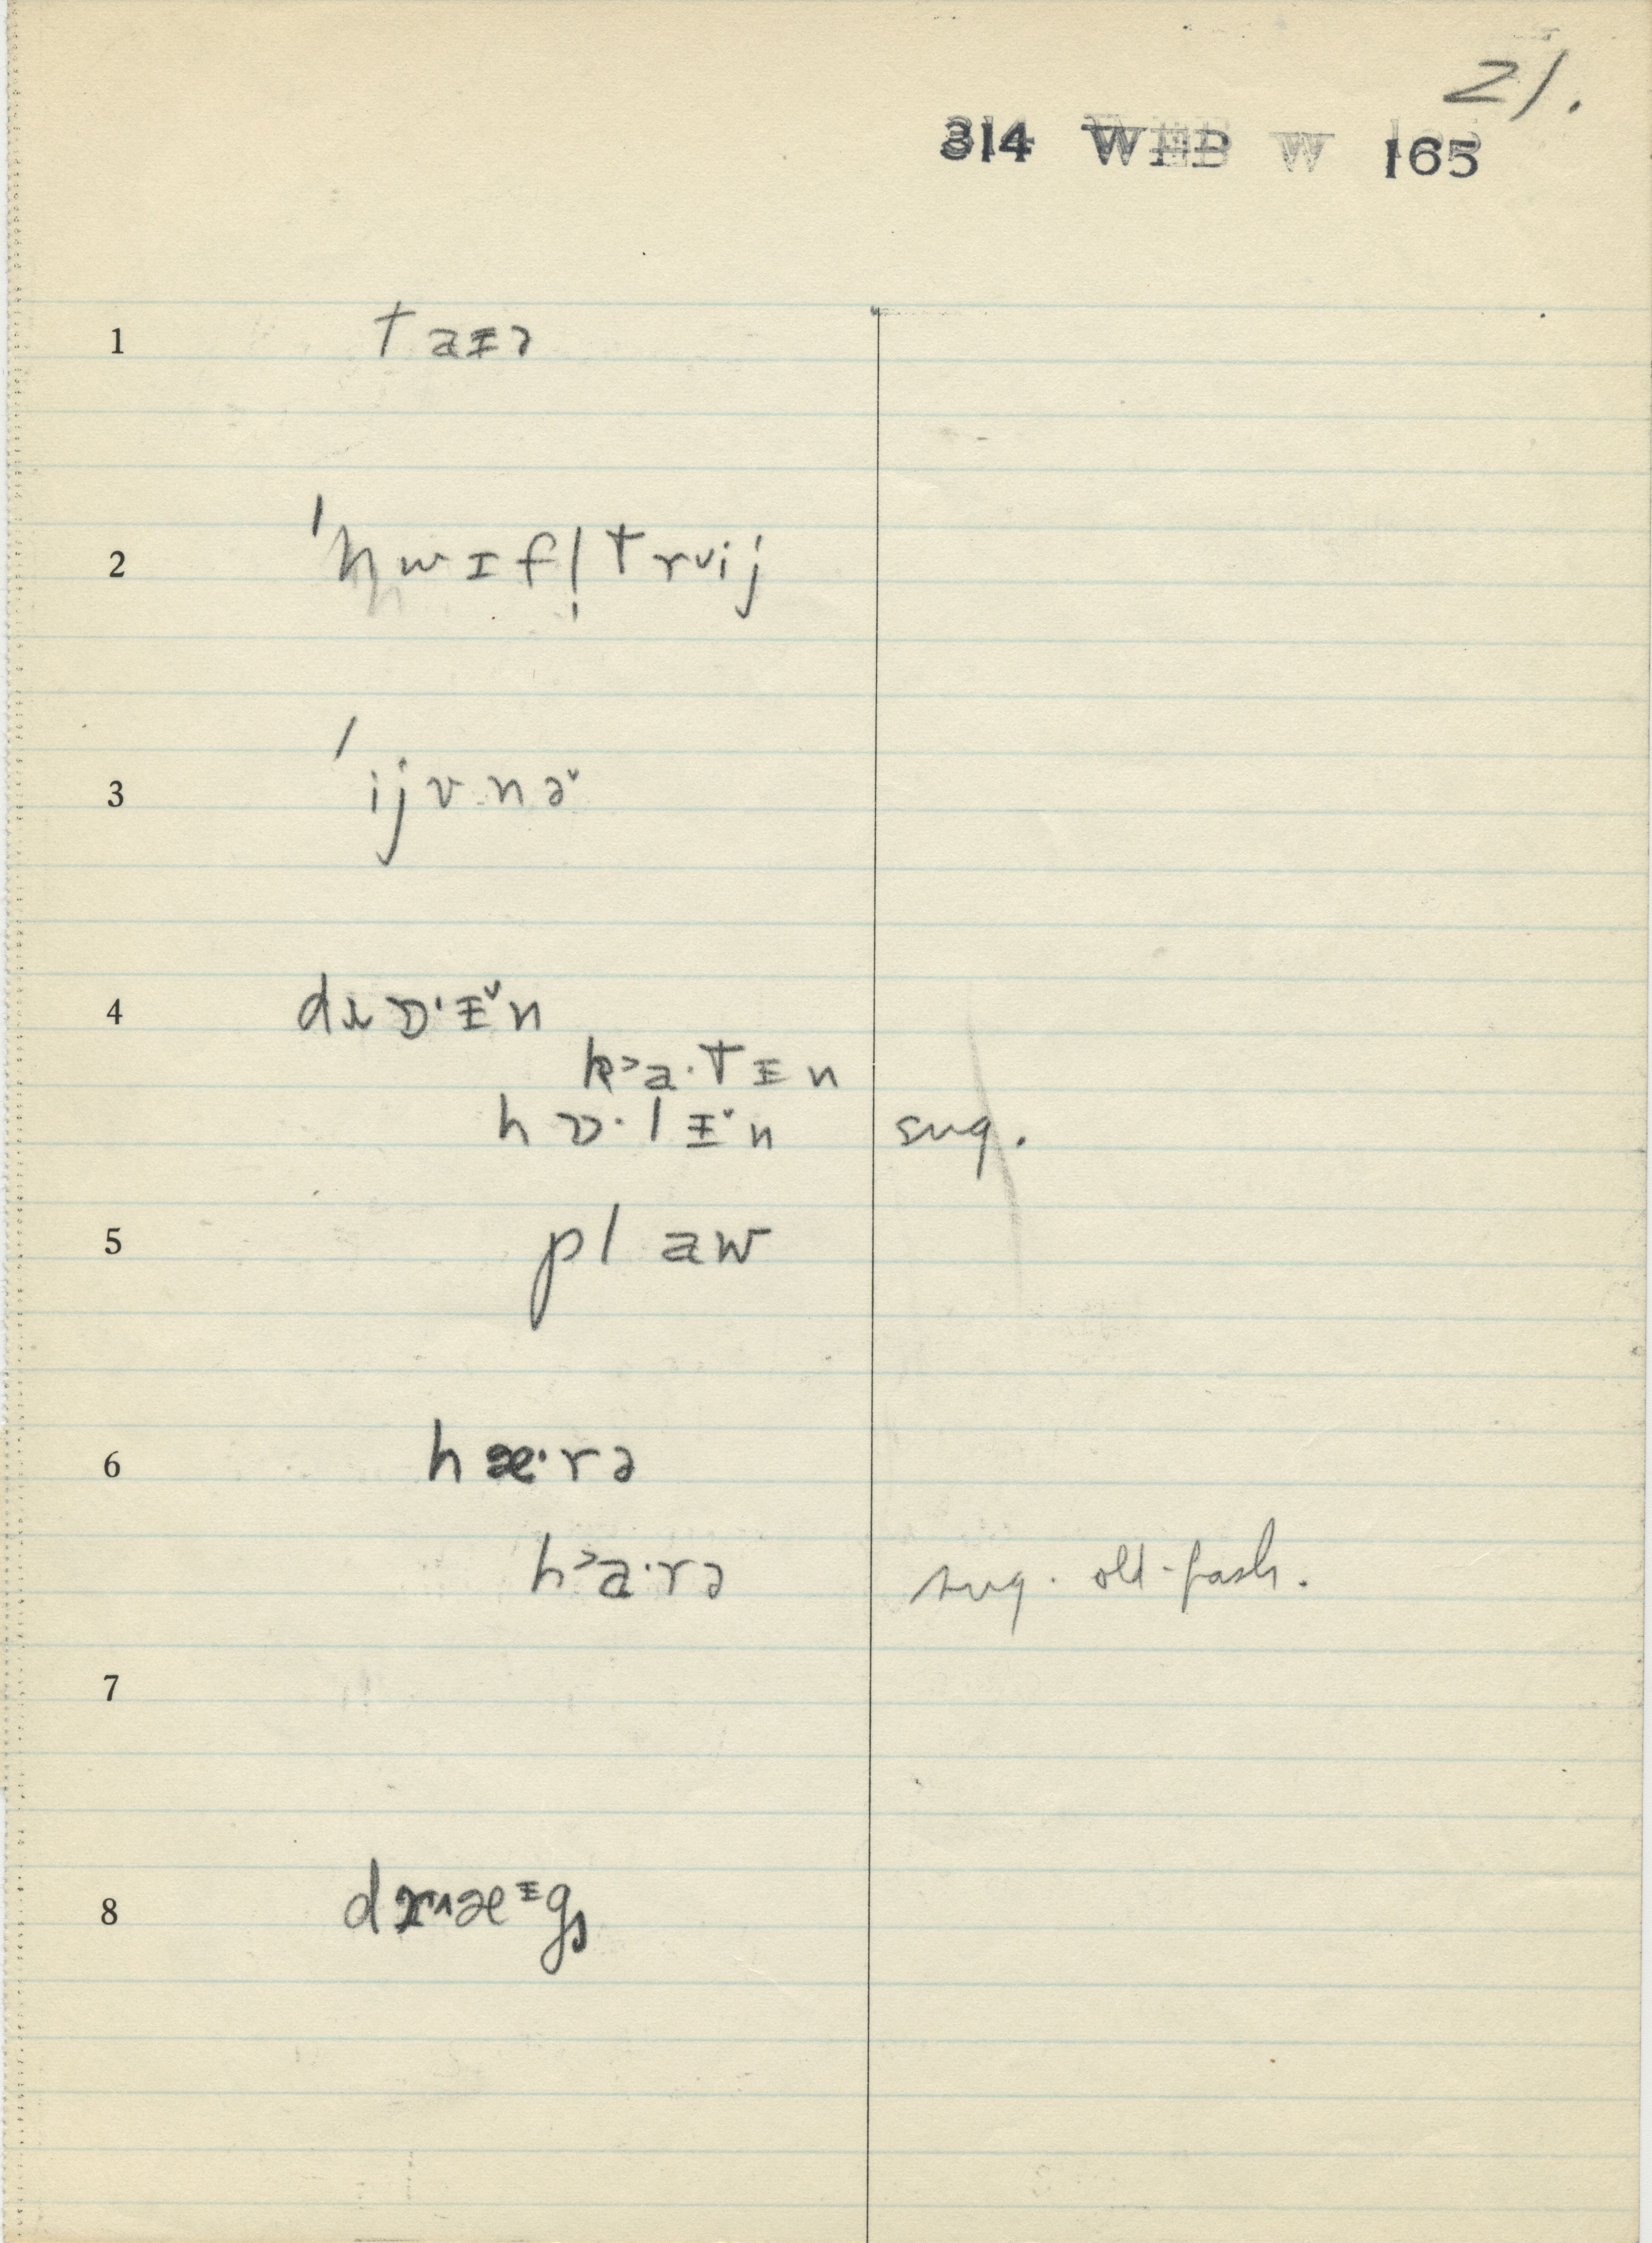 21.
314 WEB W 165
1 taᵻə
2 ˈhwɪfl̩trᵛij
3 ˈijvnə˅
4 drɒ·ᵻ˅n
k˃a·tᵻn
hɒ·lᵻ˅n sug.
5 plaw
6 hæ·rə
h˃a·rə sug. old-fash.
7
8 dr˄æᵻgz